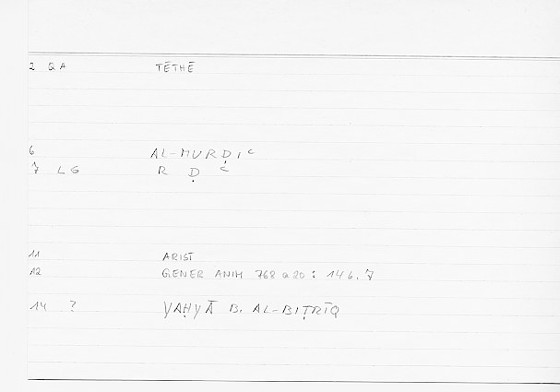 2 QA TĒTHĒ
6 AL-MURḌIʿ
7 LG R Ḍ ʿ
11 ARIST
12 GENER ANIM 762 a 20 : 146.7
14 ? YAḤYĀ B. AL-BIṬRĪQ